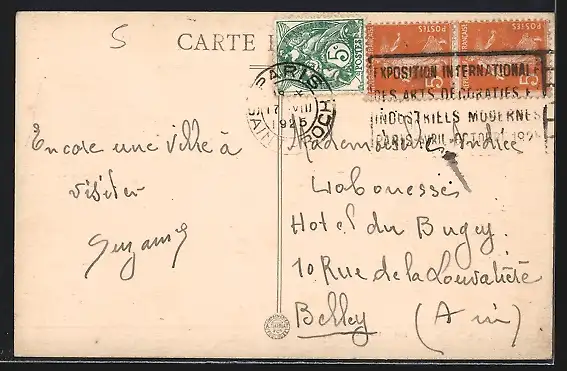 5
CARTE
5c
POSTES
5c
5c
PARIS
17 VIII
1925
EXPOSITION INTERNATIONALE
DES ARTS DECORATIFS ET
INDUSTRIELS MODERNES
PARIS AVRIL-OCTOBRE 1925
Encore une ville à
visiter
Suzanne
Mademoiselle Andrée
Hotel du Bugey
10 Rue de la
Belley (Ain)